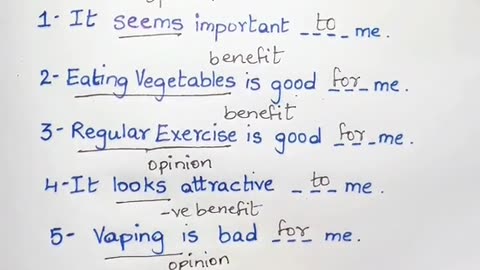 1- It seems important to me.
benefit
2- Eating Vegetables is good for me.
benefit
3- Regular Exercise is good for me.
opinion
4- It looks attractive to me.
-ve benefit
5- Vaping is bad for me.
opinion